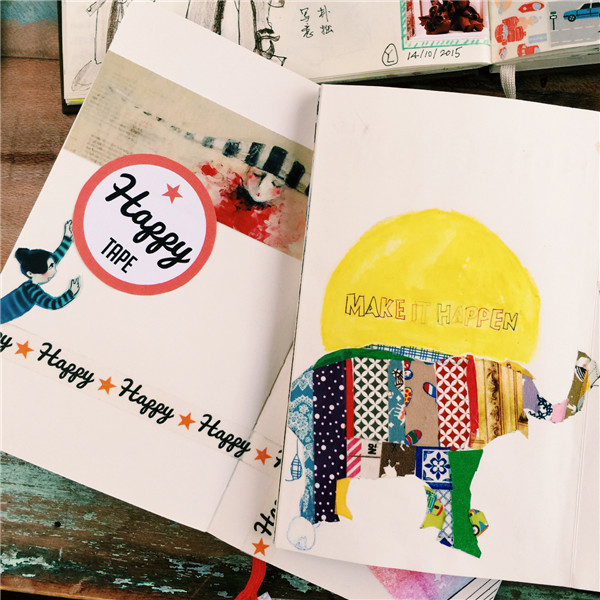 写朴
意拙
14/10/2015
Happy
TAPE
Happy Happy Happy Happy
MAKE IT HAPPEN